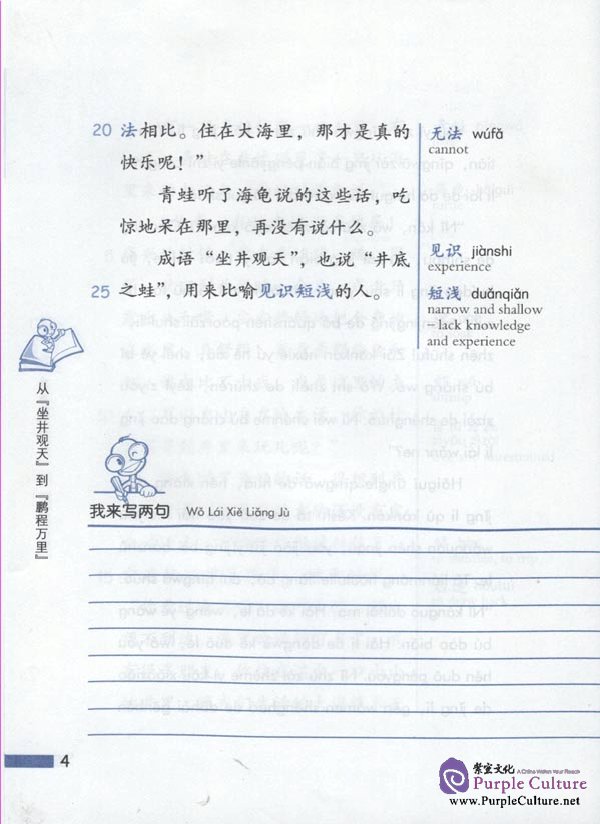 20 法相比。住在大海里，那才是真的
快乐呢！”
青蛙听了海龟说的这些话，吃
惊地呆在那里，再没有说什么。
成语“坐井观天”，也说“井底
25 之蛙”，用来比喻见识短浅的人。
无法 wúfǎ
cannot
见识 jiànshi
experience
短浅 duǎnqiǎn
narrow and shallow
– lack knowledge
and experience
从『坐井观天』到『鹏程万里』
我来写两句 Wǒ Lái Xiě Liǎng Jù
4
紫室文化 A China Within Your Reach
Purple Culture
www.PurpleCulture.net